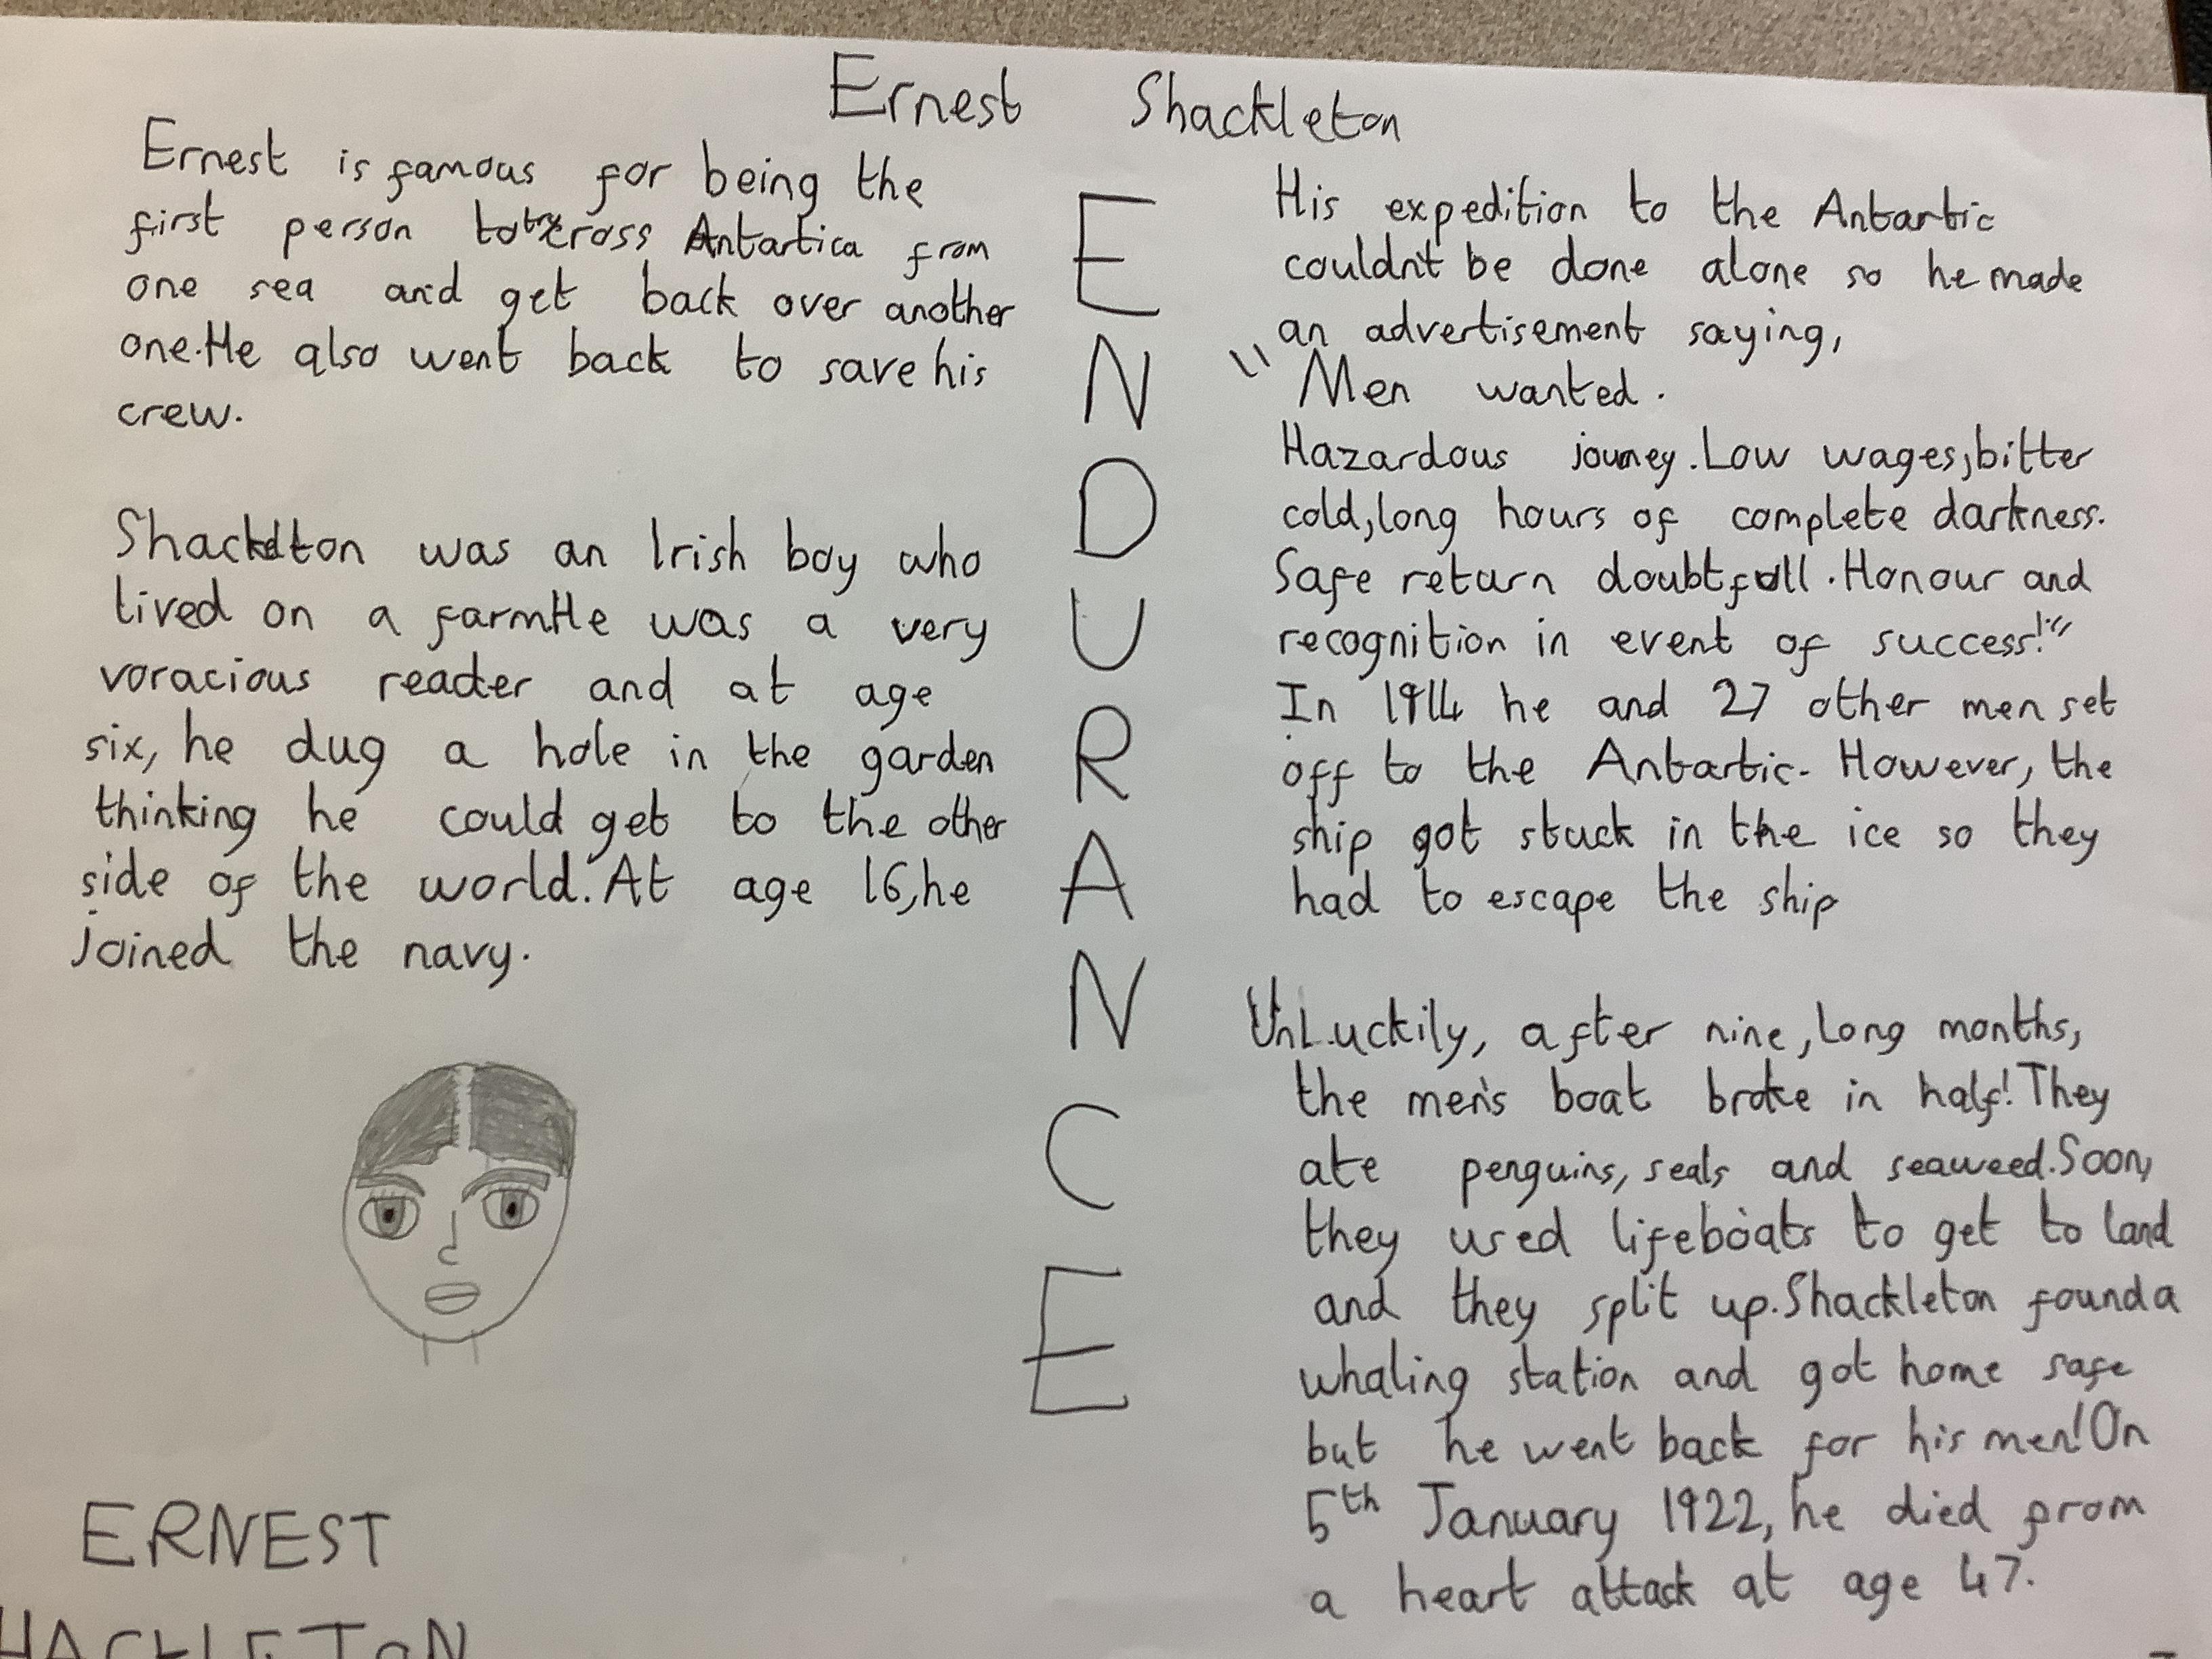 Ernest Shackleton
Ernest is famous for being the
first person to try cross Antartica from
one sea and get back over another
one. He also went back to save his
crew.
Shackelton was an Irish boy who
lived on a farm He was a very
voracious reader and at age
six, he dug a hole in the garden
thinking he could get to the other
side of the world. At age 16, he
joined the navy.
ERNEST
HACKLETON
E
N
D
U
R
A
N
C
E
His expedition to the Antartic
couldn't be done alone so he made
an advertisement saying,
"Men wanted.
Hazardous journey. Low wages, bitter
cold, long hours of complete darkness.
Safe return doubtfull. Honour and
recognition in event of success!"
In 1914 he and 27 other men set
off to the Antartic. However, the
ship got stuck in the ice so they
had to escape the ship
UnLuckily, after nine, long months,
the men's boat broke in half! They
ate penguins, seals and seaweed. Soon,
they used lifeboats to get to land
and they split up. Shackleton found a
whaling station and got home safe
but he went back for his men! On
5th January 1922, he died from
a heart attack at age 47.